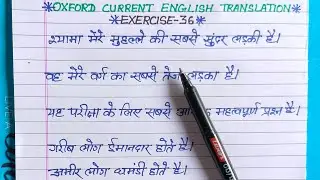 *OXFORD CURRENT ENGLISH TRANSLATION*
*EXERCISE-36*
श्यामा मेरे मुहल्ले की सबसे सुंदर लड़की है।
वह मेरे वर्ग का सबसे तेज लड़का है।
यह परीक्षा के लिए सबसे महत्वपूर्ण प्रश्न है।
गरीब लोग ईमानदार होते हैं।
अमीर लोग घमंडी होते हैं।